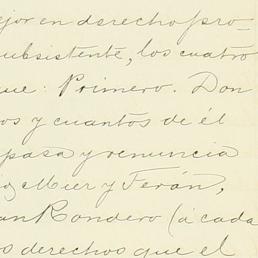 ejor en derecho pro-
ubsistente, los cuatro
ue: Primero. Don
os y cuantos de él
pasa y renuncia
Mier y Terán,
an Rondero (á cada
os derechos que el